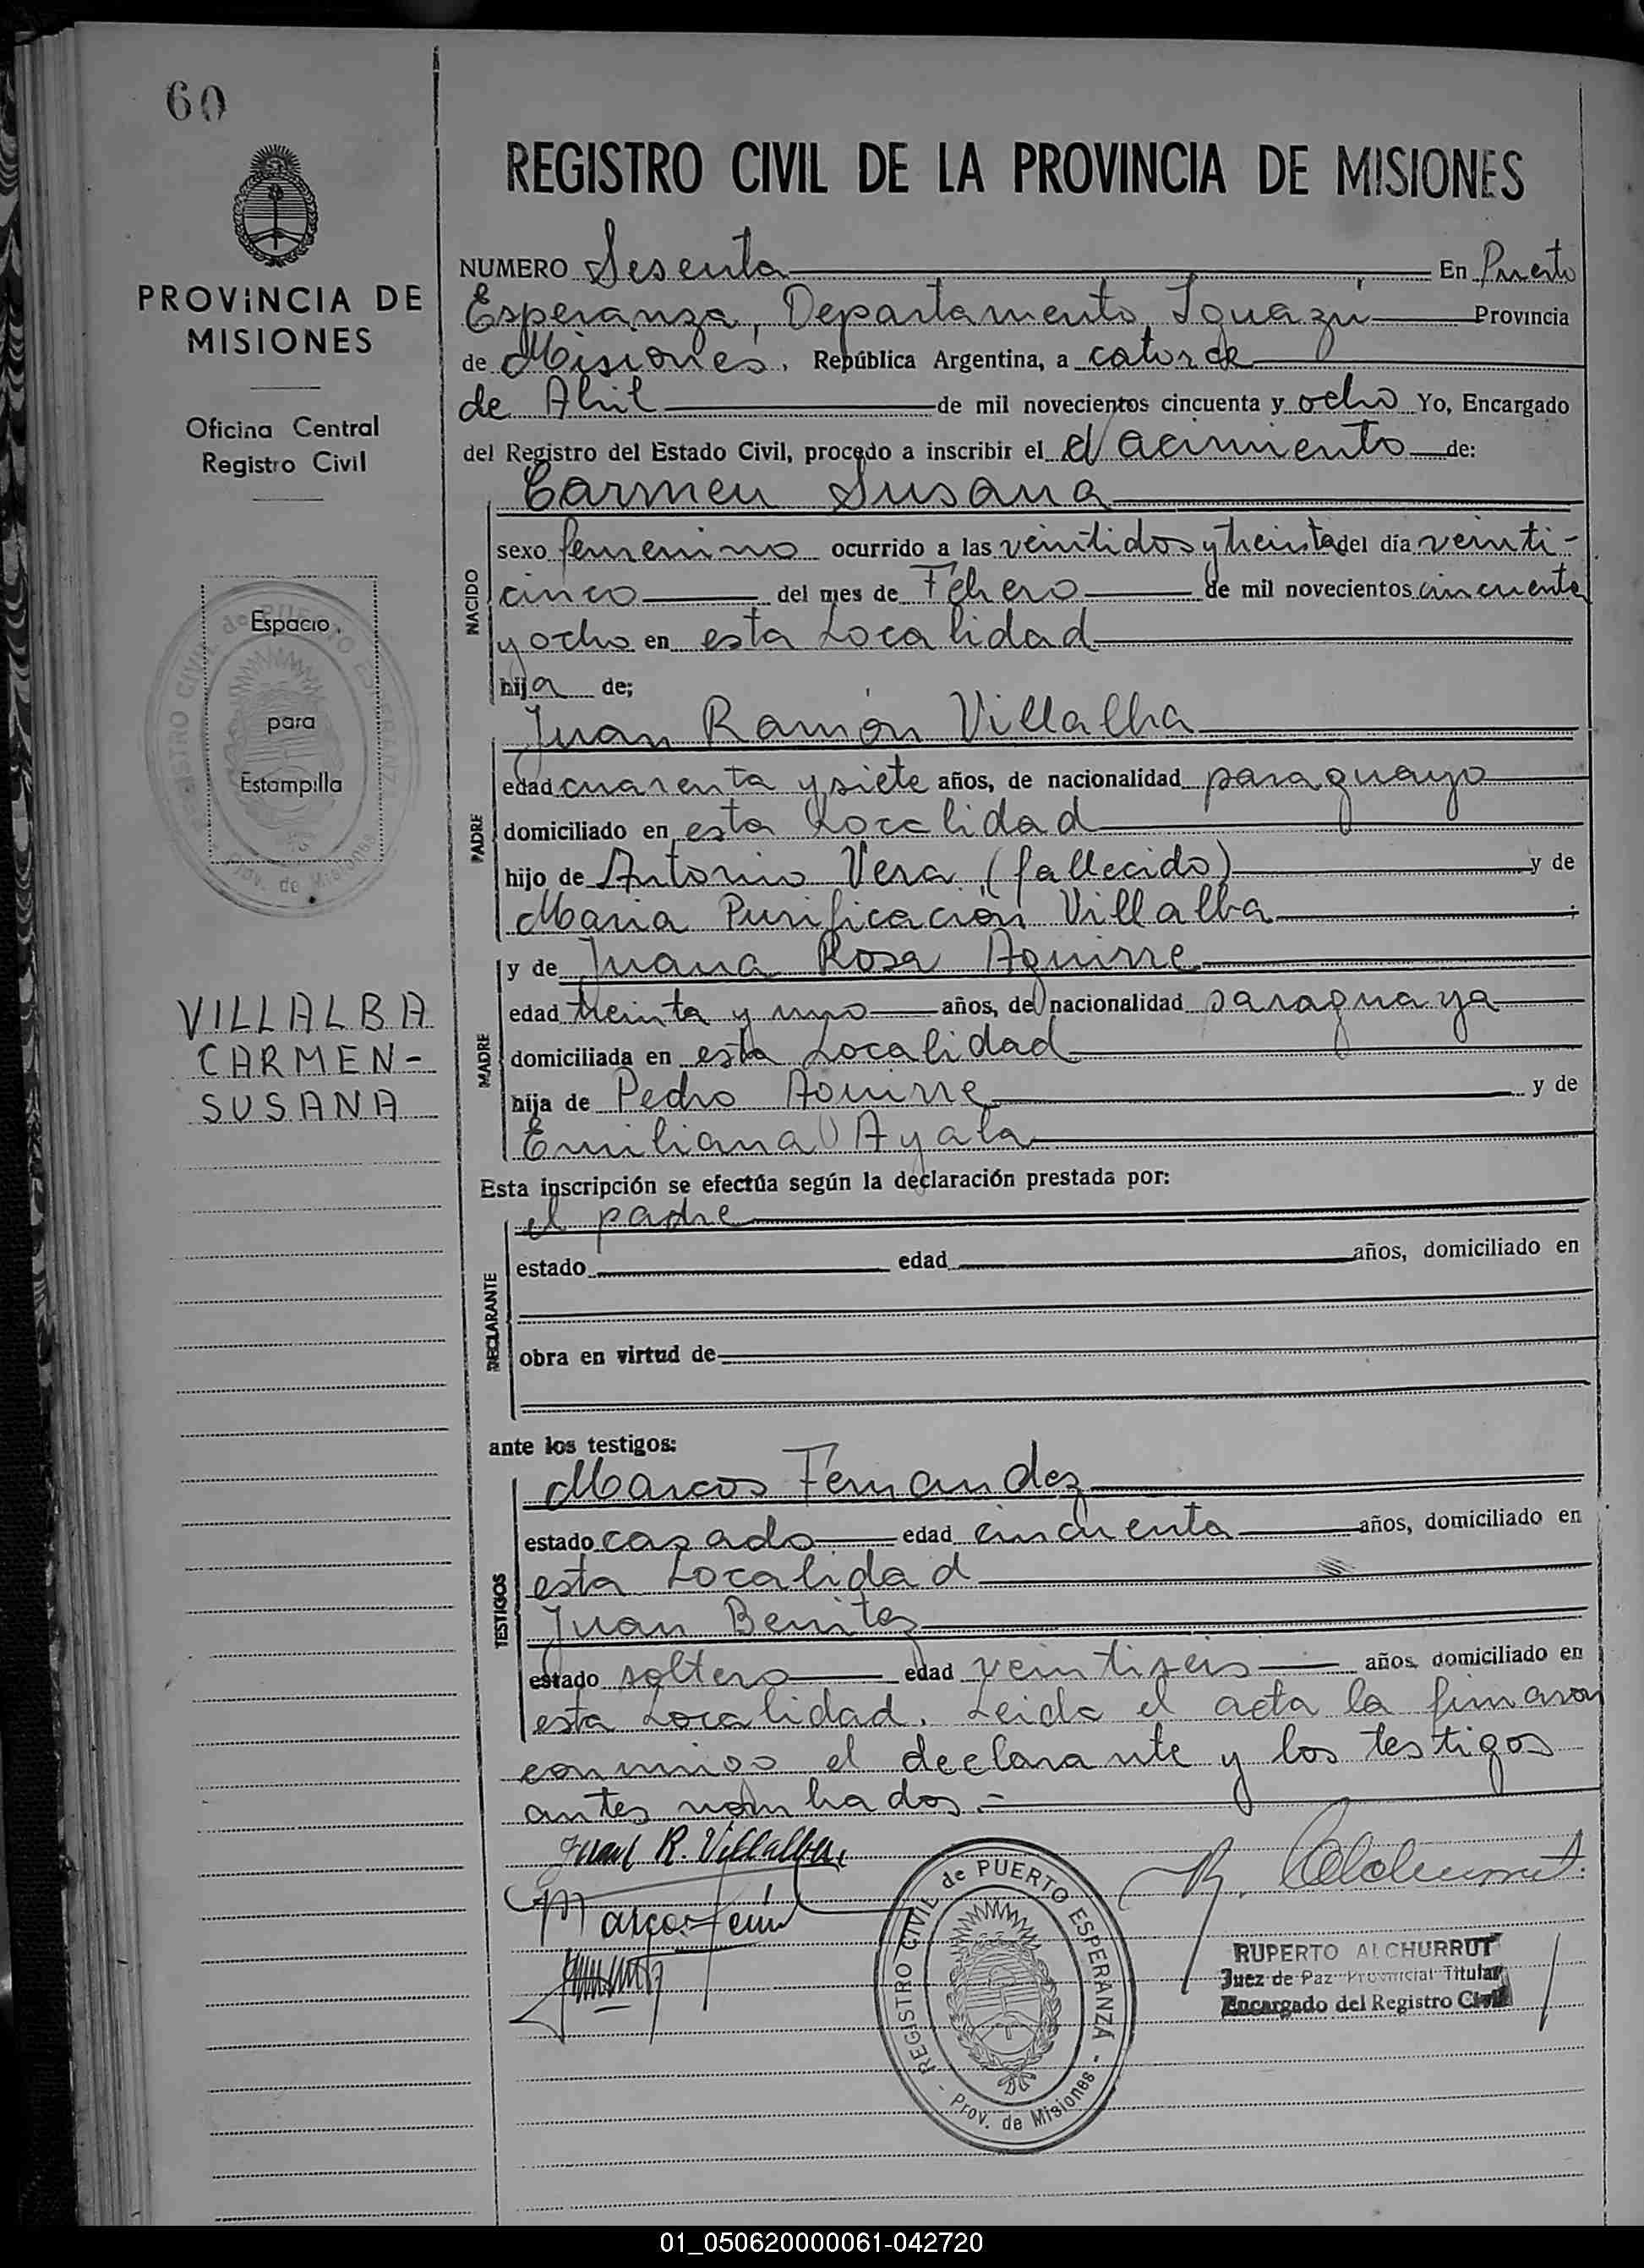 60
PROVINCIA DE
MISIONES
Oficina Central
Registro Civil
Espacio
para
Estampilla
VILLALBA
CARMEN-
SUSANA
REGISTRO CIVIL DE LA PROVINCIA DE MISIONES
NUMERO Sesenta En Puerto
Esperanza, Departamento, Iguazú Provincia
de Misiones, República Argentina, a catorce
de Abril de mil novecientos cincuenta y ocho Yo, Encargado
del Registro del Estado Civil, procedo a inscribir el Nacimiento de:
Carmen Susana
NACIDO
sexo femenino ocurrido a las veintidos y treinta del día veinti-
cinco del mes de Febrero de mil novecientos cincuenta
y ocho en esta Localidad
hija de;
Juan Ramón Villalba
PADRE
edad cuarenta y siete años, de nacionalidad paraguayo
domiciliado en esta Localidad
hijo de Antonio Vera (fallecido) y de
Maria Purificación Villalba ;
y de Juana Rosa Aguirre
MADRE
edad treinta y uno años, de nacionalidad paraguaya
domiciliada en esta Localidad
hija de Pedro Aguirre y de
Emiliana Ayala
Esta inscripción se efectúa según la declaración prestada por:
el padre
DECLARANTE
estado edad años, domiciliado en
obra en virtud de
ante los testigos:
Marcos Fernandez
TESTIGOS
estado casado edad cincuenta años, domiciliado en
esta Localidad
Juan Benitez
estado soltero edad veintiseis años, domiciliado en
esta Localidad. Leida el acta la firmaron
conmigo el declarante y los testigos
antes nombrados.-
Juan R. Villalba
Marcos Fern
REGISTRO CIVIL de PUERTO ESPERANZA - Prov. de Misiones -
RUPERTO ALCHURRUT
Juez de Paz Provincial Titular
Encargado del Registro Civil
01_050620000061-042720